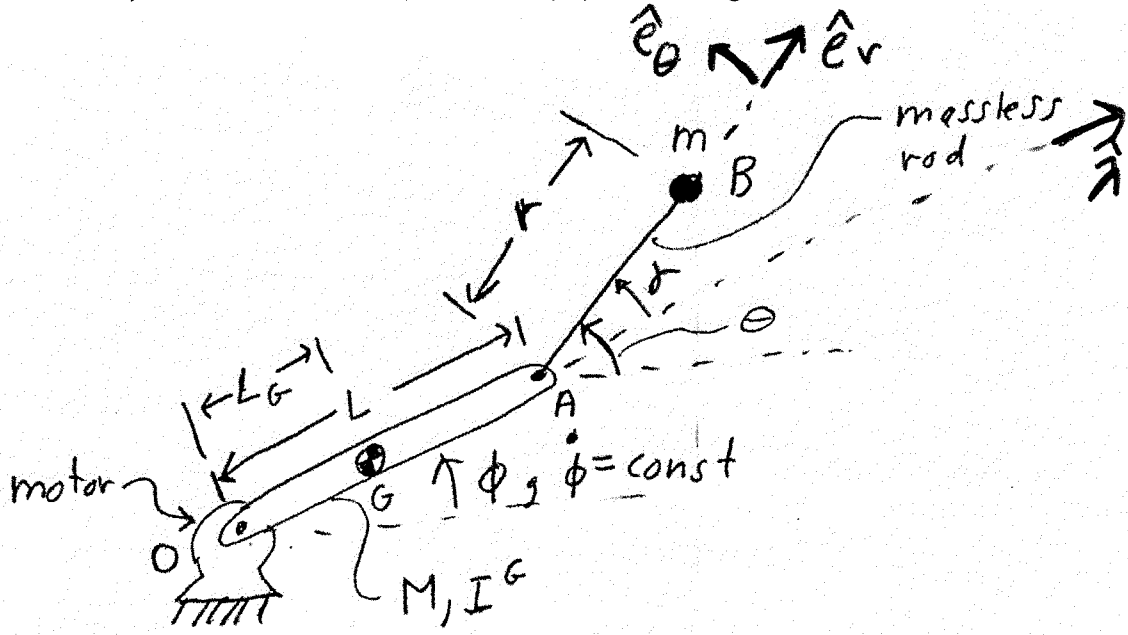 ê_θ
ê_r
massless
rod
m
B
r
γ
λ̂
θ
L_G
L
A
motor
G
ϕ, ϕ̇ = const
O
M, I^G